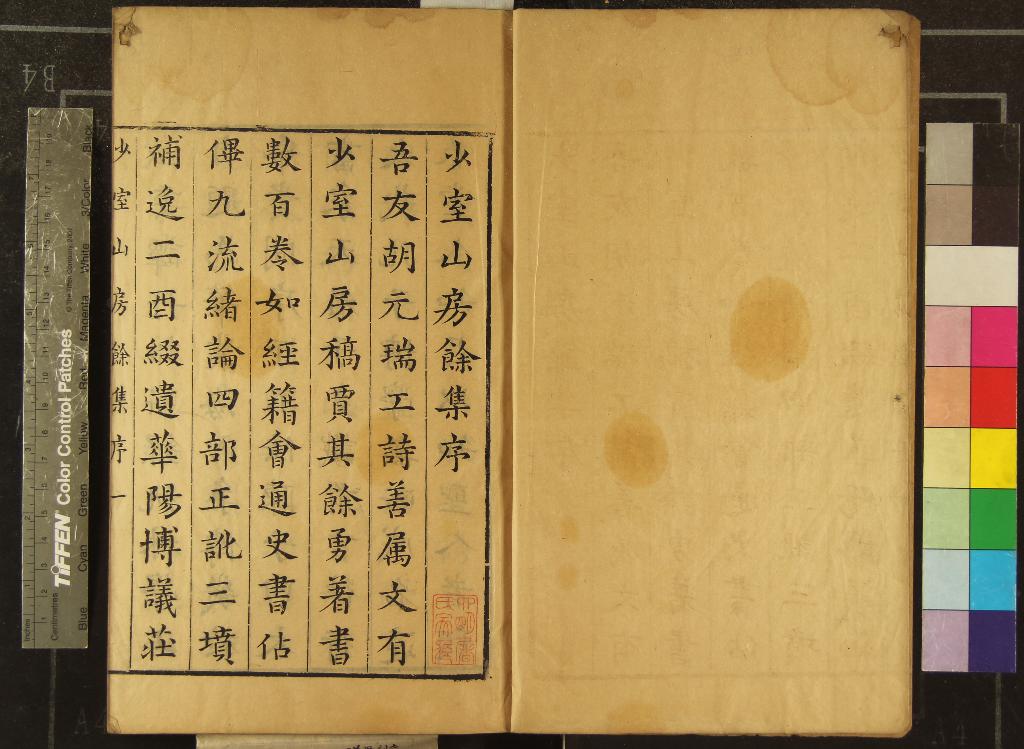 少室山房餘集序
吾友胡元瑞工詩善属文有
少室山房稿賈其餘勇著書
數百卷如經籍會通史書佔
俾九流緒論四部正訛三墳
補逸二酉綴遺華陽博議莊
少室山房餘集序 一
B4
A4
TIFFEN Color Control Patches
© The Tiffen Company, 2007
Inches
Centimetres
Blue
Cyan
Green
Yellow
Red
Magenta
White
3/Color
Black